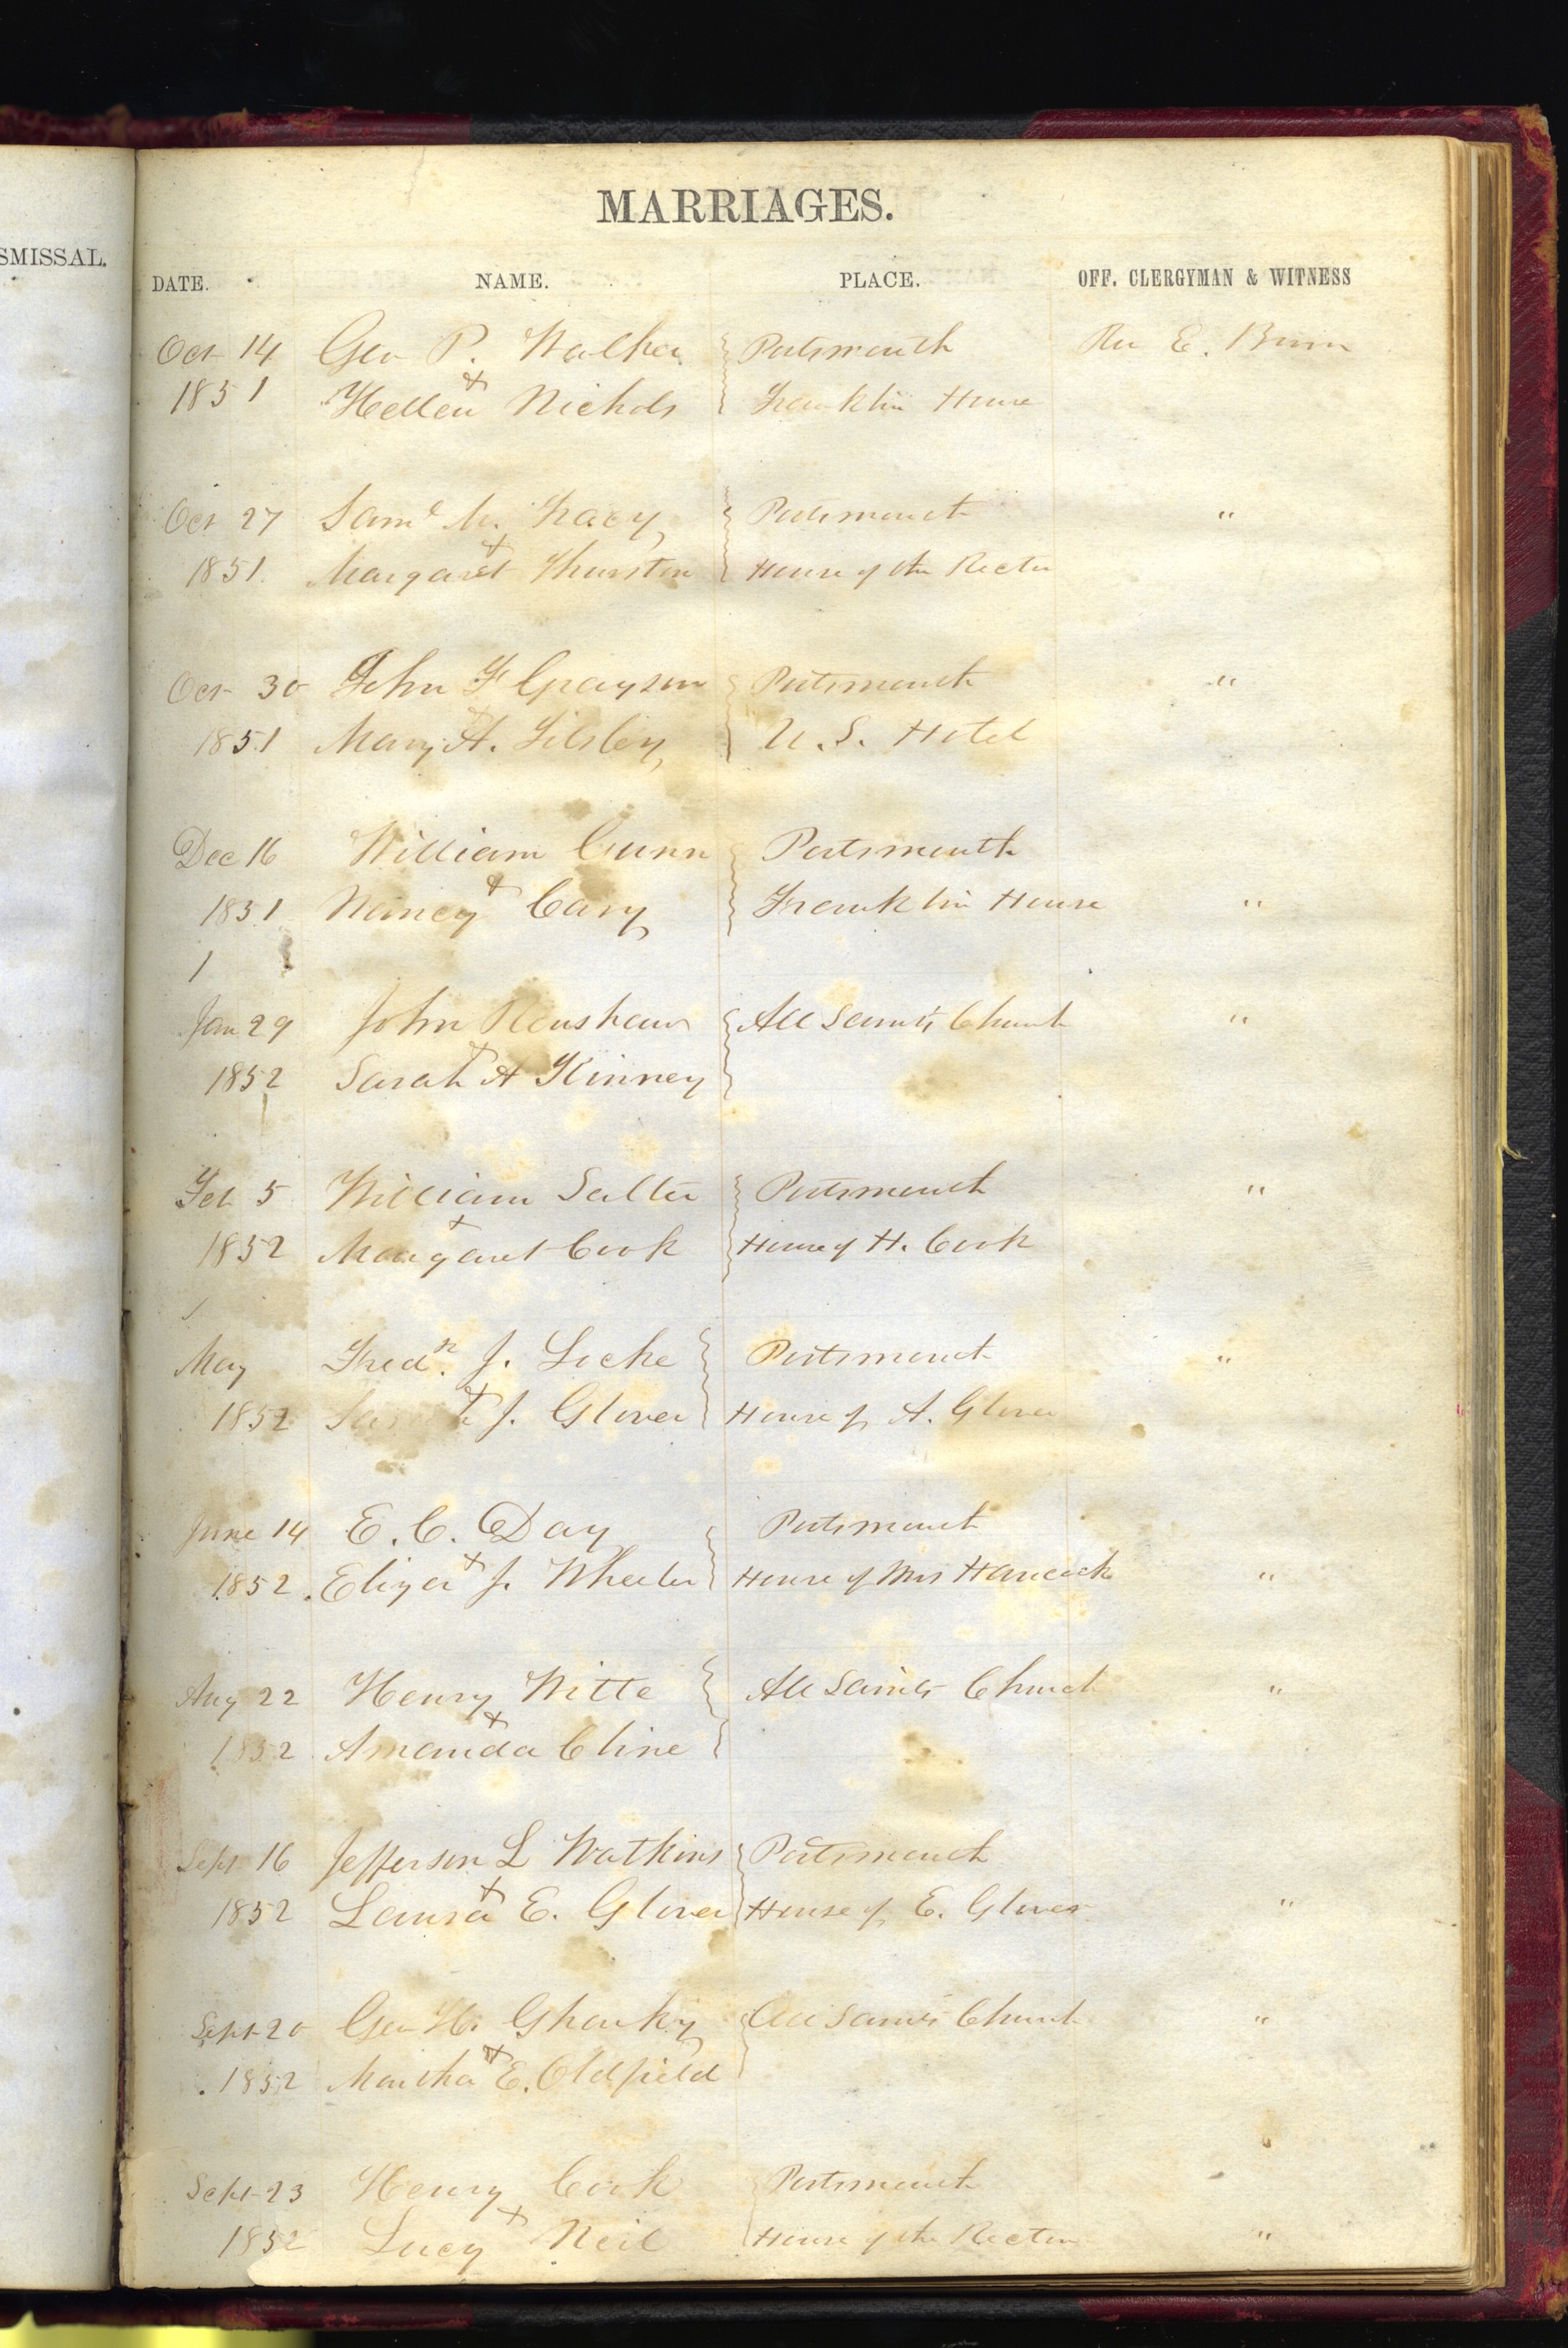 SMISSAL.
MARRIAGES.
DATE. NAME. PLACE. OFF. CLERGYMAN & WITNESS
Oct 14 Geo P. Walker Portsmouth Rev E. Burr
&
1851 Hellen Nichols Franklin House
Oct 27 Saml M. Tracy Portsmouth "
&
1851. Margaret Thurston House of the Rector
Oct 30 John F Grayson Portsmouth "
&
1851 Mary A. Silsley U. S. Hotel
Dec 16 William Gunn Portsmouth
&
1851 Nancy Cary Franklin House "
Jan 29 John Renshaw All Saints Church "
&
1852 Sarah A Kinney
Feb 5 William Salter Portsmouth "
&
1852 Margaret Cook House of H. Cook
May Fredk. J. Locke Portsmouth "
&
1852 Sarah J. Glover House of A. Glover
June 14 E. C. Day Portsmouth
&
1852. Eliza J. Wheeler House of Mrs Hancock "
Aug 22 Henry Witte All Saints Church "
&
1852 Amanda Cline
Sept 16 Jefferson L Watkins Portsmouth
&
1852 Laura E. Glover House of E. Glover "
Sept 20 Geo H. Gharky All Saints Church "
&
1852 Martha E. Oldfield
Sept 23 Henry Cook Portsmouth
&
1852 Lucy Neil House of the Rector "